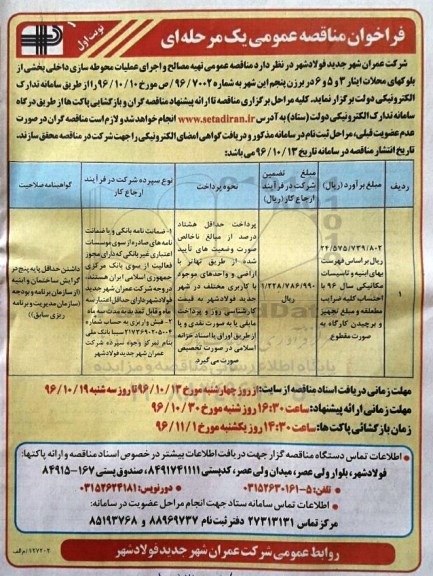 فراخوان مناقصه عمومی یک مرحله ای
نوبت اول
شرکت عمران شهر جدید فولادشهر در نظر دارد مناقصه عمومی تهیه مصالح و اجرای عملیات محوطه سازی داخلی بخشی از
بلوکهای محلات ایثار ۳ و ۵ و ۶ در برزن پنجم این شهر به شماره ۹۶/۷۰۰۲/ص مورخ ۹۶/۱۰/۱۰ را از طریق سامانه تدارک
الکترونیکی دولت برگزار نماید. کلیه مراحل برگزاری مناقصه تا ارائه پیشنهاد مناقصه گران و بازگشایی پاکت ها از طریق درگاه
سامانه تدارک الکترونیکی دولت (ستاد) به آدرس www.setadiran.ir انجام خواهد شد و لازم است مناقصه گران در صورت
عدم عضویت قبلی، مراحل ثبت نام در سامانه مذکور و دریافت گواهی امضای الکترونیکی را جهت شرکت در مناقصه محقق سازند.
تاریخ انتشار مناقصه در سامانه تاریخ ۹۶/۱۰/۱۳ می باشد:
ردیف
مبلغ برآورد (ریال)
مبلغ تضمین شرکت در فرآیند ارجاع کار (ریال)
نحوه پرداخت
نوع سپرده شرکت در فرآیند ارجاع کار
گواهینامه صلاحیت
۱
۲۴/۵۷۵/۷۳۹/۸۰۲
ریال بر اساس فهرست
بهای ابنیه و تاسیسات
مکانیکی سال ۹۶ با
احتساب کلیه ضرایب
متعلقه و مبلغ تجهیز
و برچیدن کارگاه به
صورت مقطوع
۱/۲۲۸/۷۸۶/۹۹۰
ریال
پرداخت حداقل هشتاد
درصد از مبالغ ناخالص
صورت وضعیت های تأیید
شده از طریق تهاتر با
اراضی و واحدهای موجود
با کاربری مختلف در شهر
جدید فولادشهر به قیمت
کارشناسی روز و پرداخت
مابقی یا به صورت نقدی و یا
از طریق اوراق یا اسناد خزانه
اسلامی در صورت تخصیص
صورت می گیرد.
۱- ضمانت نامه بانکی و یا ضمانت
نامه های صادره از سوی موسسات
اعتباری غیر بانکی که دارای مجوز
فعالیت از سوی بانک مرکزی
جمهوری اسلامی ایران هستند،
در وجه شرکت عمران شهر جدید
فولادشهر دارای حداقل اعتبار سه
ماه و قابل تمدید به مدت سه ماه
۲- فیش واریزی به حساب شماره
۲۱۷۳۶۹۰۲۰۵۰۰۲ سیبا بانک ملی
بنام تمرکز وجوه سپرده شرکت
عمران شهر جدید فولادشهر
داشتن حداقل پایه پنج در
گرایش ساختمان و ابنیه
(از سازمان برنامه و بودجه
(سازمان مدیریت و برنامه
ریزی سابق))
مهلت زمانی دریافت اسناد مناقصه از سایت: از روز چهارشنبه مورخ ۹۶/۱۰/۱۳ تا روز سه شنبه ۹۶/۱۰/۱۹
مهلت زمانی ارائه پیشنهاد: ساعت ۱۶:۳۰ روز شنبه مورخ ۹۶/۱۰/۳۰
زمان بازگشائی پاکت ها: ساعت ۱۴:۳۰ روز یکشنبه مورخ ۹۶/۱۱/۱
اطلاعات تماس دستگاه مناقصه گزار جهت دریافت اطلاعات بیشتر در خصوص اسناد مناقصه و ارائه پاکتها:
فولادشهر، بلوار ولی عصر، میدان ولی عصر، کدپستی ۸۴۹۱۷۴۱۱۱۱، صندوق پستی ۱۶۷-۸۴۹۱۵
تلفن: ۵-۰۳۱۵۲۶۳۰۱۶۱ دورنویس: ۰۳۱۵۲۶۲۴۱۸۱
اطلاعات تماس سامانه ستاد جهت انجام مراحل عضویت در سامانه:
مرکز تماس ۲۷۳۱۳۱۳۱ دفتر ثبت نام ۸۸۹۶۹۷۳۷ و ۸۵۱۹۳۷۶۸
روابط عمومی شرکت عمران شهر جدید فولادشهر